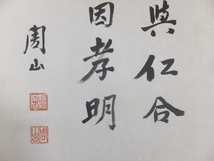 與仁合
因孝明
周山